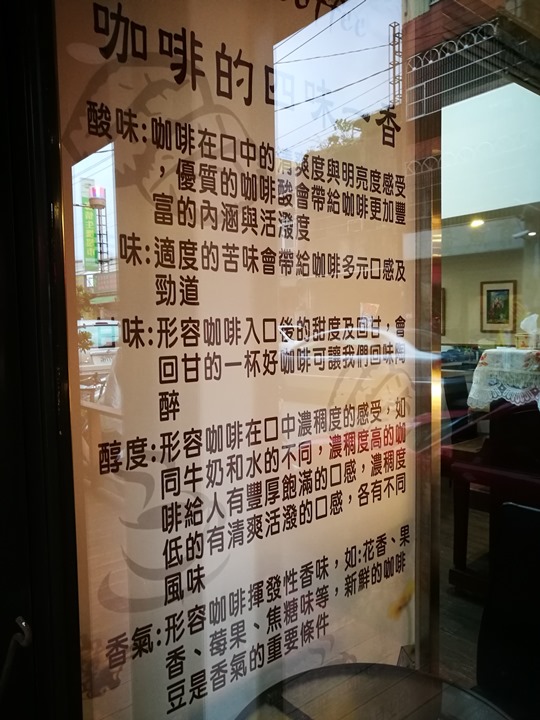 咖啡的四味一香
酸味:咖啡在口中的清爽度與明亮度感受
，優質的咖啡酸會帶給咖啡更加豐
富的內涵與活潑度
味:適度的苦味會帶給咖啡多元口感及
勁道
味:形容咖啡入口後的甜度及回甘，會
回甘的一杯好咖啡可讓我們回味陶
醉
醇度:形容咖啡在口中濃稠度的感受，如
同牛奶和水的不同，濃稠度高的咖
啡給人有豐厚飽滿的口感，濃稠度
低的有清爽活潑的口感，各有不同
風味
香氣:形容咖啡揮發性香味，如:花香、果
香、莓果、焦糖味等，新鮮的咖啡
豆是香氣的重要條件